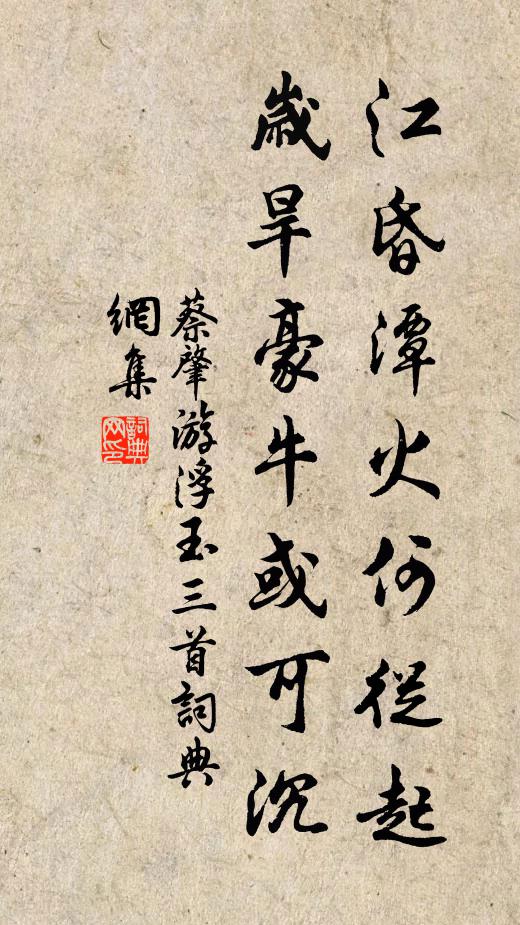 江昏潭火何從起
歲旱豪牛或可沉
蔡肇游浮玉三首詞典
網集
詞典
网印